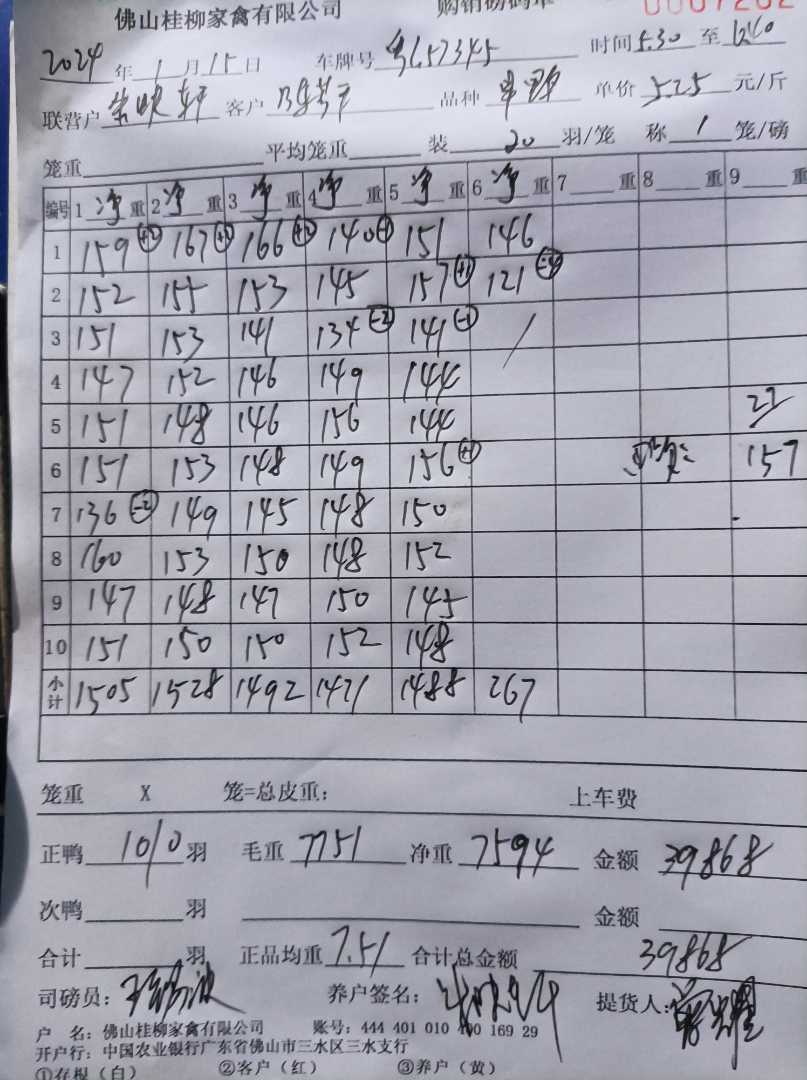 佛山桂柳家禽有限公司 购销磅码单 0007262
2024年1月15日 车牌号 粤L57345 时间5.30至6:40
联营户 客户 品种 单价5.25元/斤
笼重 平均笼重 装20羽/笼 称1笼/磅
编号 1净重 2净重 3净重 4净重 5净重 6净重 7重 8重 9重
1 159(+2) 167(+2) 166(+2) 140(-1) 151 146
2 152 155 153 145 157(+1) 121(-4)
3 151 153 141 134(-2) 141(-1) /
4 147 152 146 149 144
5 151 148 146 156 144 27
6 151 153 148 149 156(+1) 157
7 136(-2) 149 145 148 150
8 160 153 150 148 152
9 147 148 147 150 145
10 151 150 150 152 148
小计 1505 1528 1492 1471 1488 267
笼重 X 笼=总皮重： 上车费
正鸭1010羽 毛重7751 净重7594 金额39868
次鸭 羽 金额
合计 羽 正品均重7.51 合计总金额39868
司磅员： 养户签名： 提货人：
户 名：佛山桂柳家禽有限公司 账号：444 401 010 400 169 29
开户行：中国农业银行广东省佛山市三水区三水支行
①存根（白） ②客户（红） ③养户（黄）